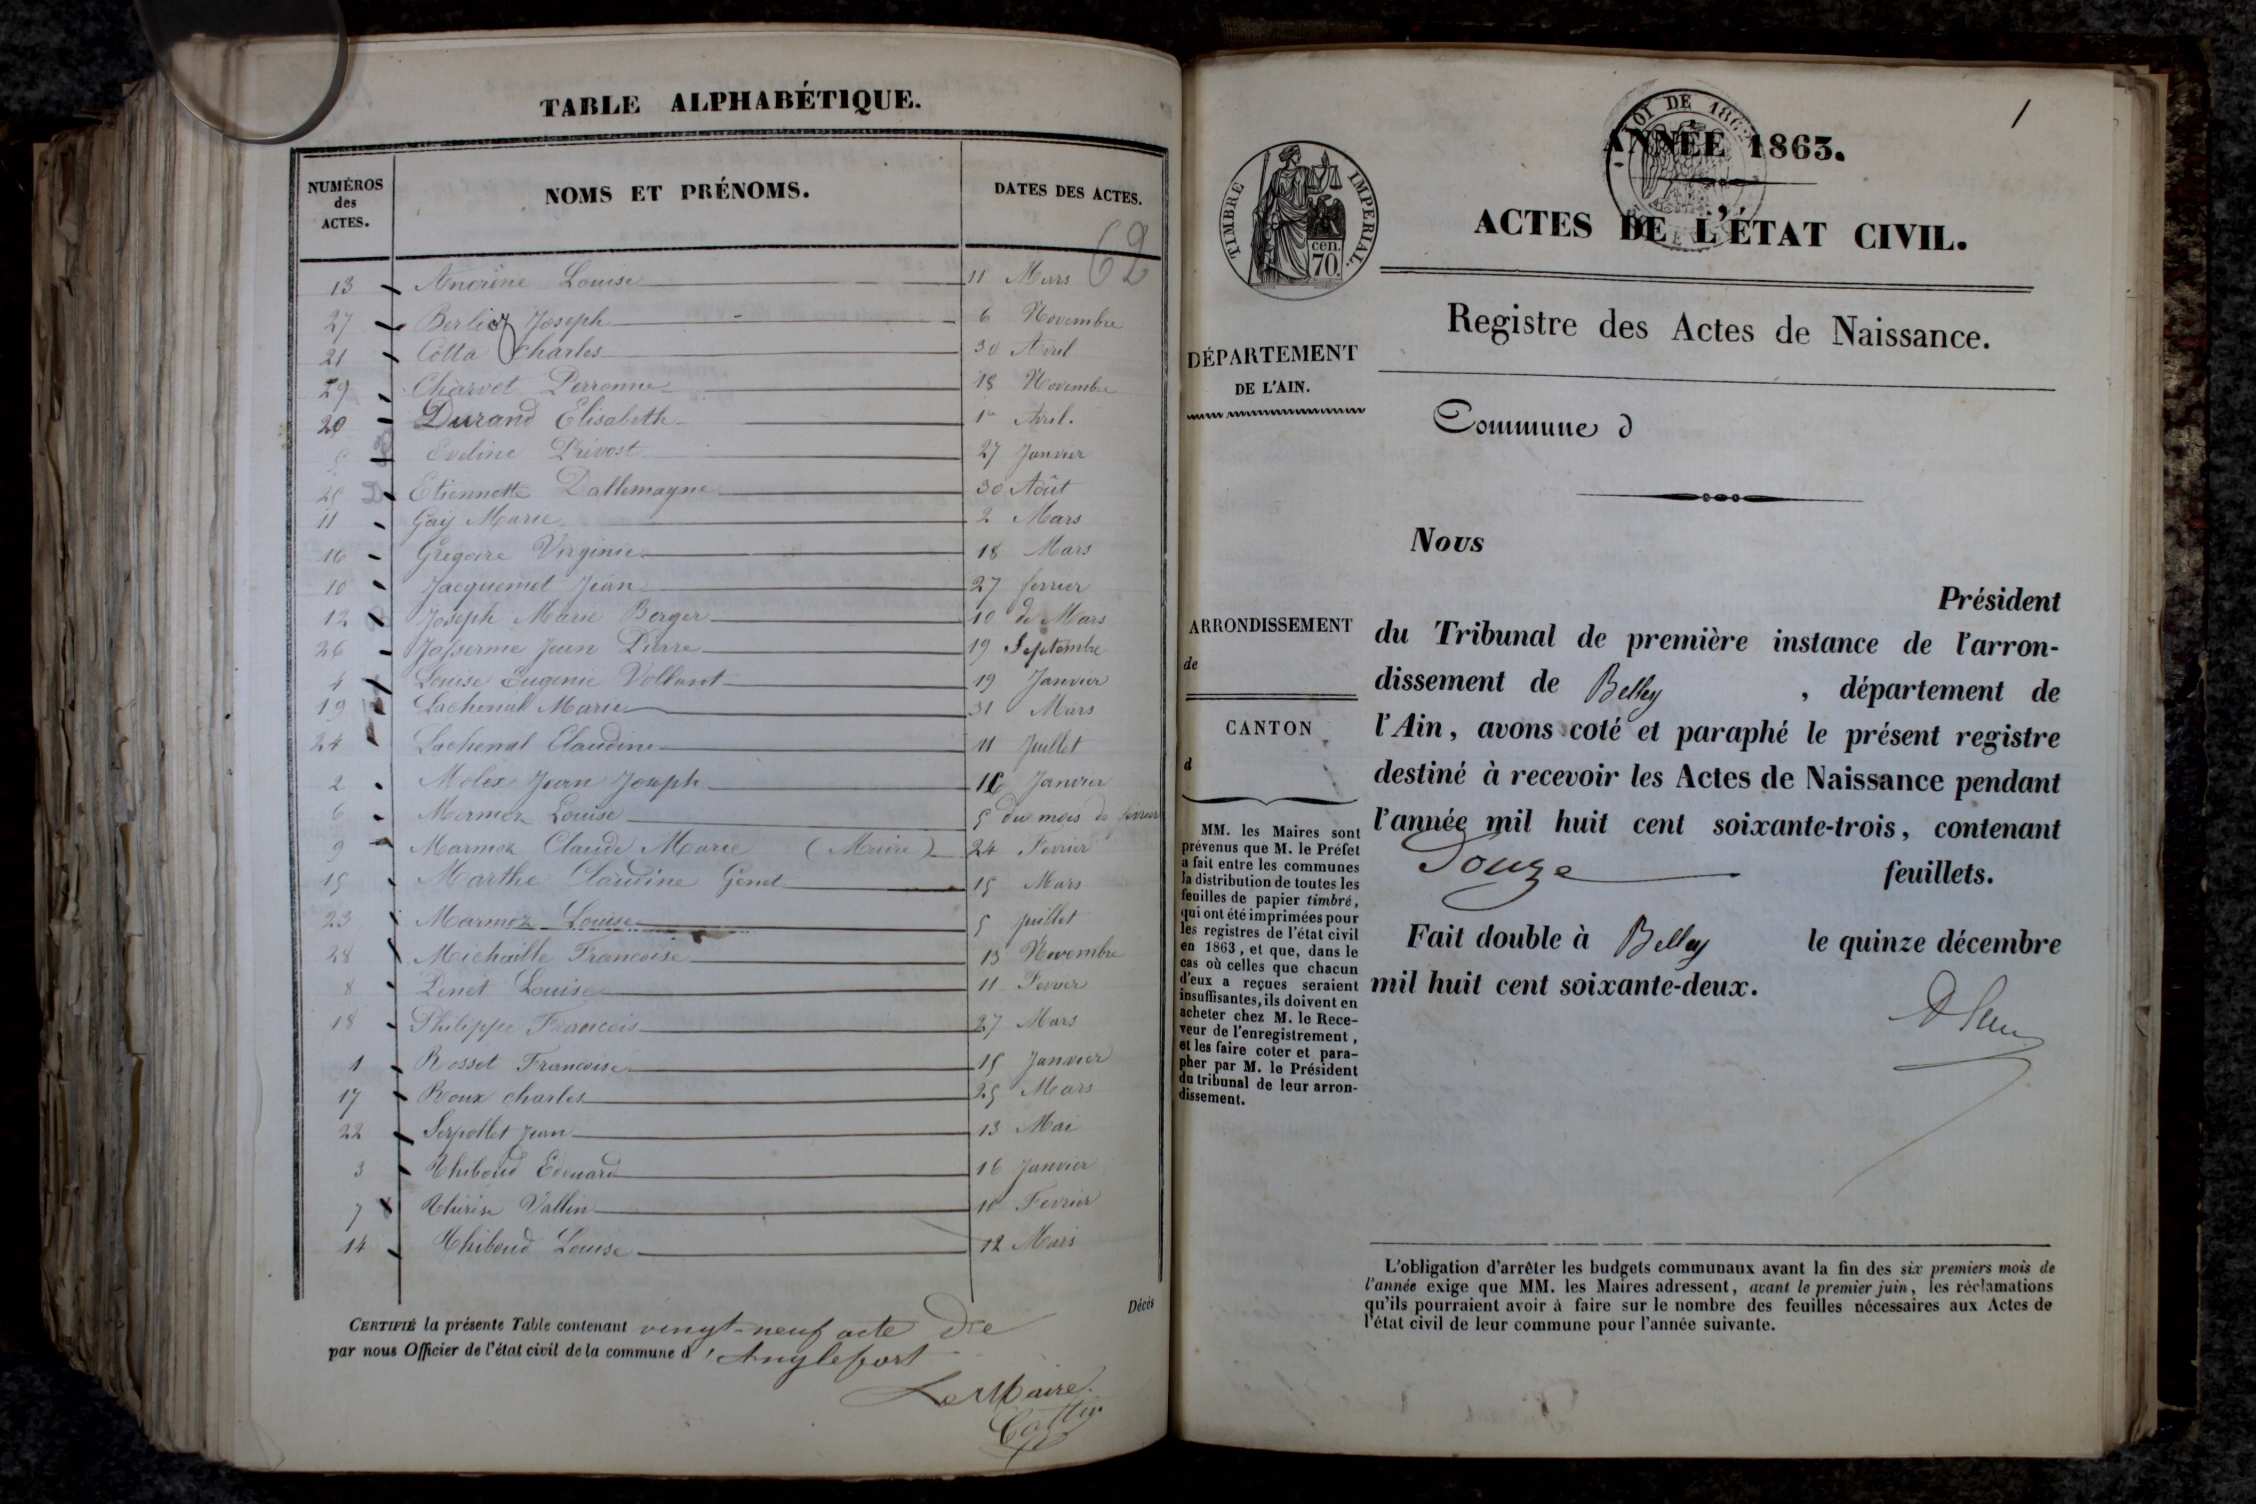 TABLE ALPHABÉTIQUE.
NUMÉROS des ACTES. NOMS ET PRÉNOMS. DATES DES ACTES.
62
13 Louise 11 Mars
27 Joseph 6 Novembre
21 Cotta Charles 30 Avril
29 Charvet Perronne 18 Novembre
20 Durand Elisabeth 1er Avril.
Eveline Privost 27 Janvier
25 Etiennette Dallemagne 30 Août
11 Gay Marie 2 Mars
16 Gregoire Virginie 18 Mars
10 Jacquemet Jean 27 fevrier
12 Joseph Marie Berger 10 de Mars
26 Jasserme Jean Pierre 19 Septembre
4 Louise Eugenie Vollant 19 Janvier
19 Lachenal Marie 31 Mars
24 Lachenal Claudine 11 Juillet
2 Molex Jean Joseph Janvier
6 Mermoz Louise 5 du mois de fevrier
9 Marmoz Claude Marie 24 Fevrier
15 Marthe Claudine Genet 15 Mars
23 Marmoz Louise 5 Juillet
28 Michaille Francoise 13 Novembre
8 Penet Louise 11 Fevrier
18 Philippe Francois 27 Mars
1 Rosset Francoise 15 Janvier
17 Roux Charles 25 Mars
22 Serpollet Jean 13 Mai
3 Thiboud Edouard 16 Janvier
7 Thérèse Vallin 10 Fevrier
14 Thiboud Louise 12 Mars
Décés
CERTIFIÉ la présente Table contenant vingt-neuf acte
par nous Officier de l'état civil de la commune d'Anglefort
Le Maire.
1
LOI DE 1862
ANNÉE 1863.
TIMBRE IMPERIAL.
cen.
70.
ACTES DE L'ÉTAT CIVIL.
Registre des Actes de Naissance.
DÉPARTEMENT
DE L'AIN.
Commune d
Nous
Président
ARRONDISSEMENT
de
CANTON
d
du Tribunal de première instance de l'arron-
dissement de Belley , département de
l'Ain, avons coté et paraphé le présent registre
destiné à recevoir les Actes de Naissance pendant
l'année mil huit cent soixante-trois, contenant
Douze feuillets.
Fait double à Belley le quinze décembre
mil huit cent soixante-deux.
MM. les Maires sont
prévenus que M. le Préfet
a fait entre les communes
la distribution de toutes les
feuilles de papier timbré,
qui ont été imprimées pour
les registres de l'état civil
en 1863, et que, dans le
cas où celles que chacun
d'eux a reçues seraient
insuffisantes, ils doivent en
acheter chez M. le Rece-
veur de l'enregistrement,
et les faire coter et para-
pher par M. le Président
du tribunal de leur arron-
dissement.
L'obligation d'arrêter les budgets communaux avant la fin des six premiers mois de
l'année exige que MM. les Maires adressent, avant le premier juin, les réclamations
qu'ils pourraient avoir à faire sur le nombre des feuilles nécessaires aux Actes de
l'état civil de leur commune pour l'année suivante.